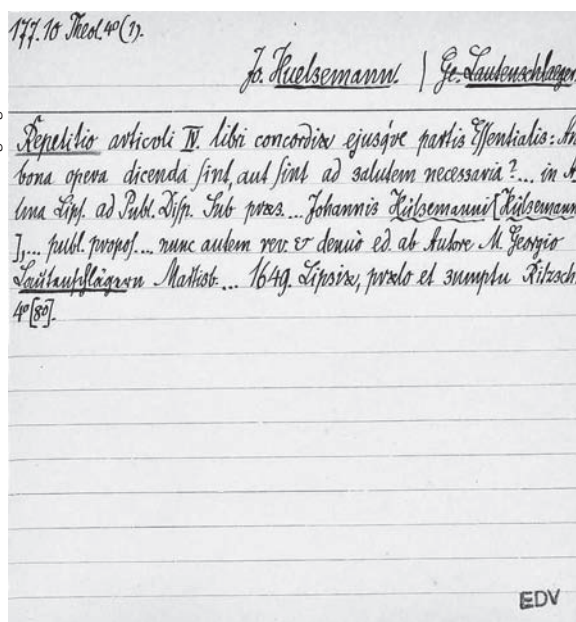 177.10 Theol. 4º (1).
Jo. Huelsemann. | Ge. Lautenschlaeger.
Repetitio articoli IV libri concordiæ ejusq́ve partis Essentialis: An
bona opera dicenda sint, aut sint ad salutem necessaria? ... in A
lma Lips. ad Publ. Disp. Sub præs. ... Johannis Hülsemanni [Hülsemann
], ... publ. propos. ... nunc autem rev. & denuò ed. ab Autore M. Georgio
Lautenschlägern ... 1649. Lipsiæ, prælo et sumptu Ritzsch.
4º [8º].
EDV